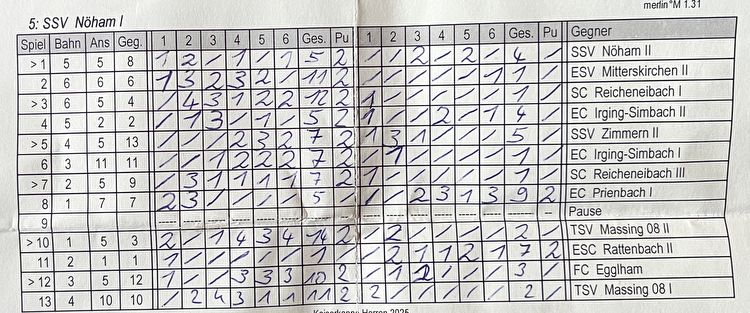 merlin®M 1.31
5: SSV Nöham I
Spiel Bahn Ans Geg. 1 2 3 4 5 6 Ges. Pu 1 2 3 4 5 6 Ges. Pu Gegner
> 1 5 5 8 1 2 / 1 / 1 5 2 / / 2 / 2 / 4 / SSV Nöham II
2 6 6 6 1 3 2 3 2 / 11 2 / / / / / 1 1 / ESV Mitterskirchen II
> 3 6 5 4 / 4 3 1 2 2 12 2 1 / / / / / 1 / SC Reicheneibach I
4 5 2 2 / 1 3 / / 1 5 2 1 / / 2 / 1 4 / EC Irging-Simbach II
> 5 4 5 13 / / / 2 3 2 7 2 1 3 1 / / / 5 / SSV Zimmern II
6 3 11 11 / / 1 2 2 2 7 2 / 1 / / / / 1 / EC Irging-Simbach I
> 7 2 5 9 / 3 1 1 1 1 7 2 1 / / / / / 1 / SC Reicheneibach III
8 1 7 7 2 3 / / / / 5 / / / 2 3 1 3 9 2 EC Prienbach I
9 ---- ---- ---- ---- ---- ---- ---- -- ---- ---- ---- ---- ---- ---- ---- -- Pause
> 10 1 5 3 2 / 1 4 3 4 14 2 / 2 / / / / 2 / TSV Massing 08 II
11 2 1 1 1 / / / / / 1 / / 2 1 1 2 1 7 2 ESC Rattenbach II
> 12 3 5 12 1 / / 3 3 3 10 2 / 1 2 / / / 3 / FC Egglham
13 4 10 10 / 2 4 3 1 1 11 2 2 / / / / / 2 / TSV Massing 08 I